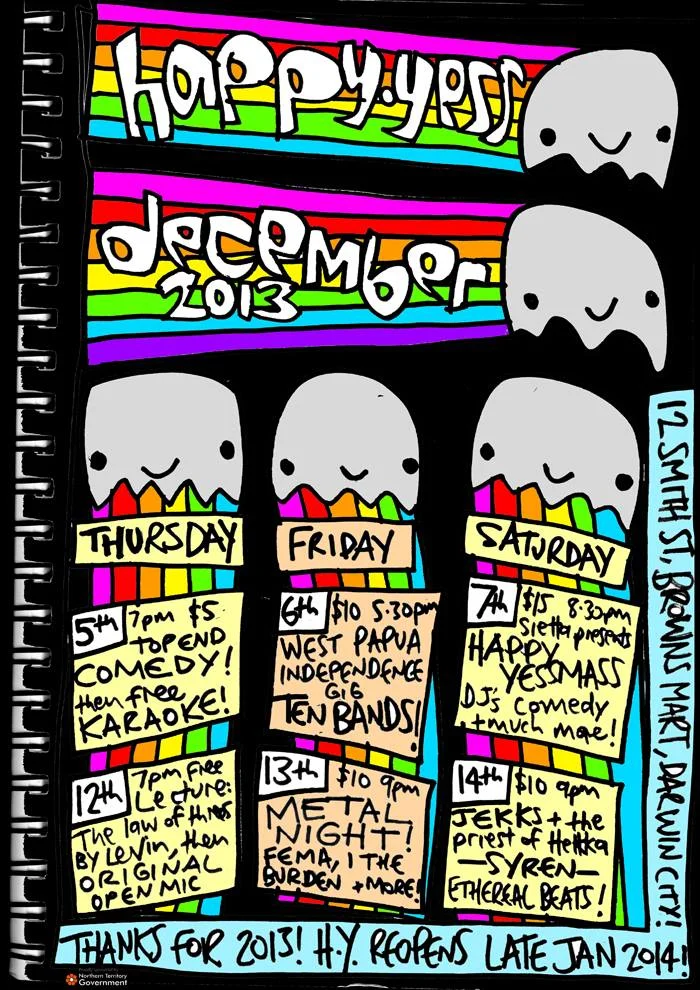 happy.yess
december
2013
THURSDAY
5th 7pm $5
TOP END
COMEDY!
then free
KARAOKE!
12th 7pm Free
Lecture:
The law of threes
BY Levin, then
ORIGINAL
OPEN MIC
FRIDAY
6th $10 5.30pm
WEST PAPUA
INDEPENDENCE
GIG
TEN BANDS!
13th $10 9pm
METAL
NIGHT!
FEMA, I THE
BURDEN + MORE!
SATURDAY
7th $15 8:30pm
Sietta presents
HAPPY
YESSMASS
DJ's Comedy
+ much more!
14th $10 9pm
JEKKS + the
priest of Hekka
—SYREN—
ETHEREAL BEATS!
12 SMITH ST, BROWNS MART, DARWIN CITY!
THANKS FOR 2013! H.Y. REOPENS LATE JAN 2014!
Northern Territory
Government